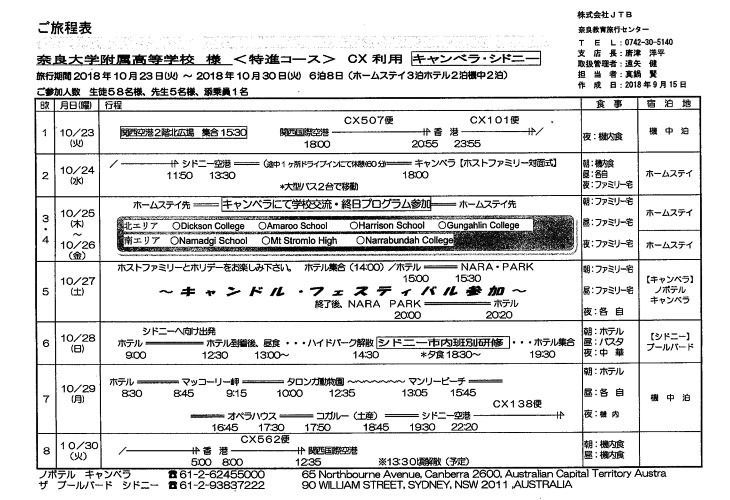 ご旅程表
株式会社JTB
奈良教育旅行センター
TEL:0742-30-5140
支店長:唐津 洋平
取扱管理者:遠矢 健
担当者:真鍋 賢
作成日:2018年9月15日
奈良大学附属高等学校 様 <特進コース> CX利用 キャンベラ・シドニー
旅行期間2018年10月23日(火)~2018年10月30日(火) 6泊8日(ホームステイ3泊ホテル2泊機中2泊)
ご参加人数 生徒58名様、先生5名様、添乗員1名
月日(曜) 行程 食事 宿泊地
1 10/23 (火) CX507便 CX101便
関西空港2階北広場 集合15:30 関西国際空港 香港
18:00 20:55 23:55 夜:機内食 機中泊
2 10/24 (水) シドニー空港 (途中1ヶ所ドライブインにて休憩(60分) キャンベラ【ホストファミリー対面式】 朝:機内食
11:50 13:30 18:00 昼:各自 ホームステイ
*大型バス2台で移動 夜:ファミリー宅
3・4 10/25 (木) ~ 10/26 (金) ホームステイ先 キャンベラにて学校交流・終日プログラム参加 ホームステイ先 朝:ファミリー宅 ホームステイ
北エリア ○Dickson College ○Amaroo School ○Harrison School ○Gungahlin College 昼:ファミリー宅
南エリア ○Namadgi School ○Mt Stromlo High ○Narrabundah College 夜:ファミリー宅 ホームステイ
5 10/27 (土) ホストファミリーとホリデーをお楽しみ下さい。 ホテル集合(14:00)/ホテル NARA・PARK 朝:ファミリー宅 【キャンベラ】
15:00 15:30 ノボテル
~キャンドル・フェスティバル参加~ 昼:ファミリー宅 キャンベラ
終了後、NARA PARK ホテル
20:00 20:20 夜:各自
6 10/28 (日) シドニーへ向け出発 朝:ホテル 【シドニー】
ホテル ホテル到着後、昼食・・・ハイドパーク解散 シドニー市内班別研修・・・ホテル集合 昼:パスタ ブールバード
9:00 12:30 13:00~ 14:30 *夕食18:30~ 19:30 夜:中華
7 10/29 (月) ホテル マッコーリー岬 タロンガ動物園 ~~~ マンリービーチ 朝:ホテル
8:30 8:45 9:15 10:00 12:35 13:05 15:45 昼:各自 機中泊
CX138便
オペラハウス コガルー(土産) シドニー空港 夜:機内
16:45 17:30 17:50 18:45 19:30 22:20
8 10/30 (火) CX562便 朝:機内食
香港 関西国際空港 昼:機内食
5:00 8:00 12:35 ※13:30頃解散(予定)
ノボテル キャンベラ ☎61-2-62455000 65 Northbourne Avenue, Canberra 2600, Australian Capital Territory Austra
ザ ブールバード シドニー ☎61-2-93837222 90 WILLIAM STREET, SYDNEY, NSW 2011 ,AUSTRALIA